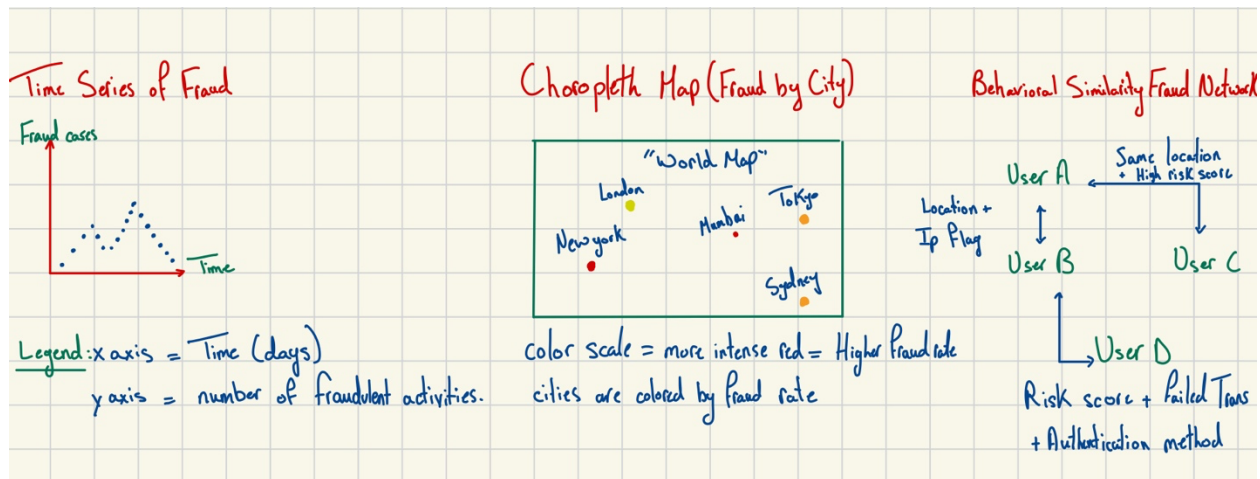 Time Series of Fraud
Fraud cases
Time
Legend: x axis = Time (days)
y axis = number of fraudulent activities.
Choropleth Map (Fraud by City)
"World Map"
London
Tokyo
Mumbai
Newyork
Sydney
color scale = more intense red = Higher fraud rate
cities are colored by fraud rate
Behavioral Similarity Fraud Network
Same location
+ High risk score
User A
Location +
Ip Flag
User B
User C
User D
Risk score + Failed Trans
+ Authentication method